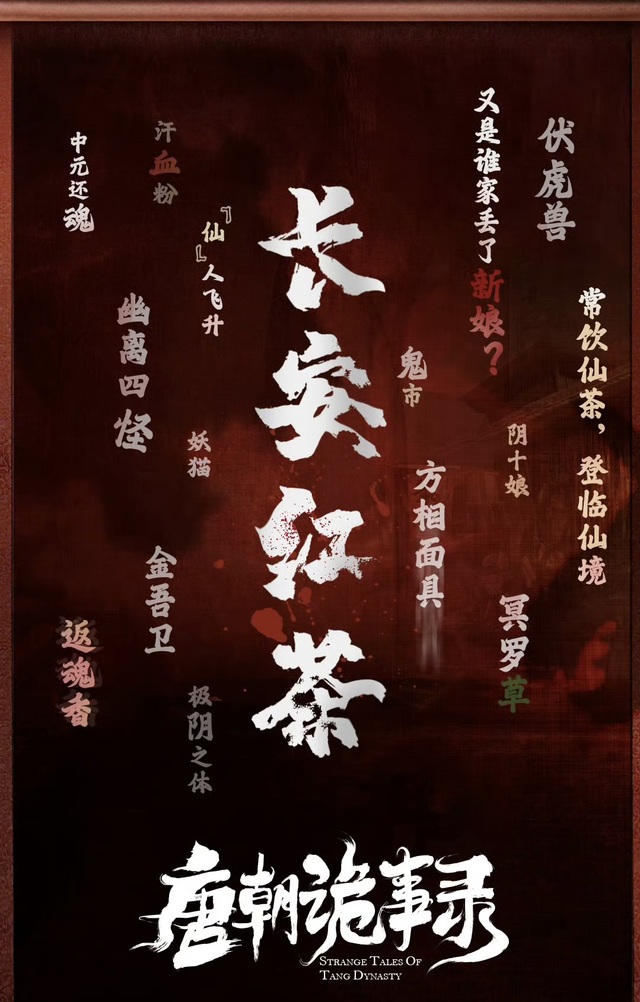 伏虎兽
又是谁家丢了新娘？
常饮仙茶，登临仙境
鬼市
阴十娘
方相面具
冥罗草
长安红茶
『仙』人飞升
汗血粉
中元还魂
幽离四怪
妖猫
金吾卫
返魂香
极阴之体
唐朝诡事录
STRANGE TALES OF
TANG DYNASTY